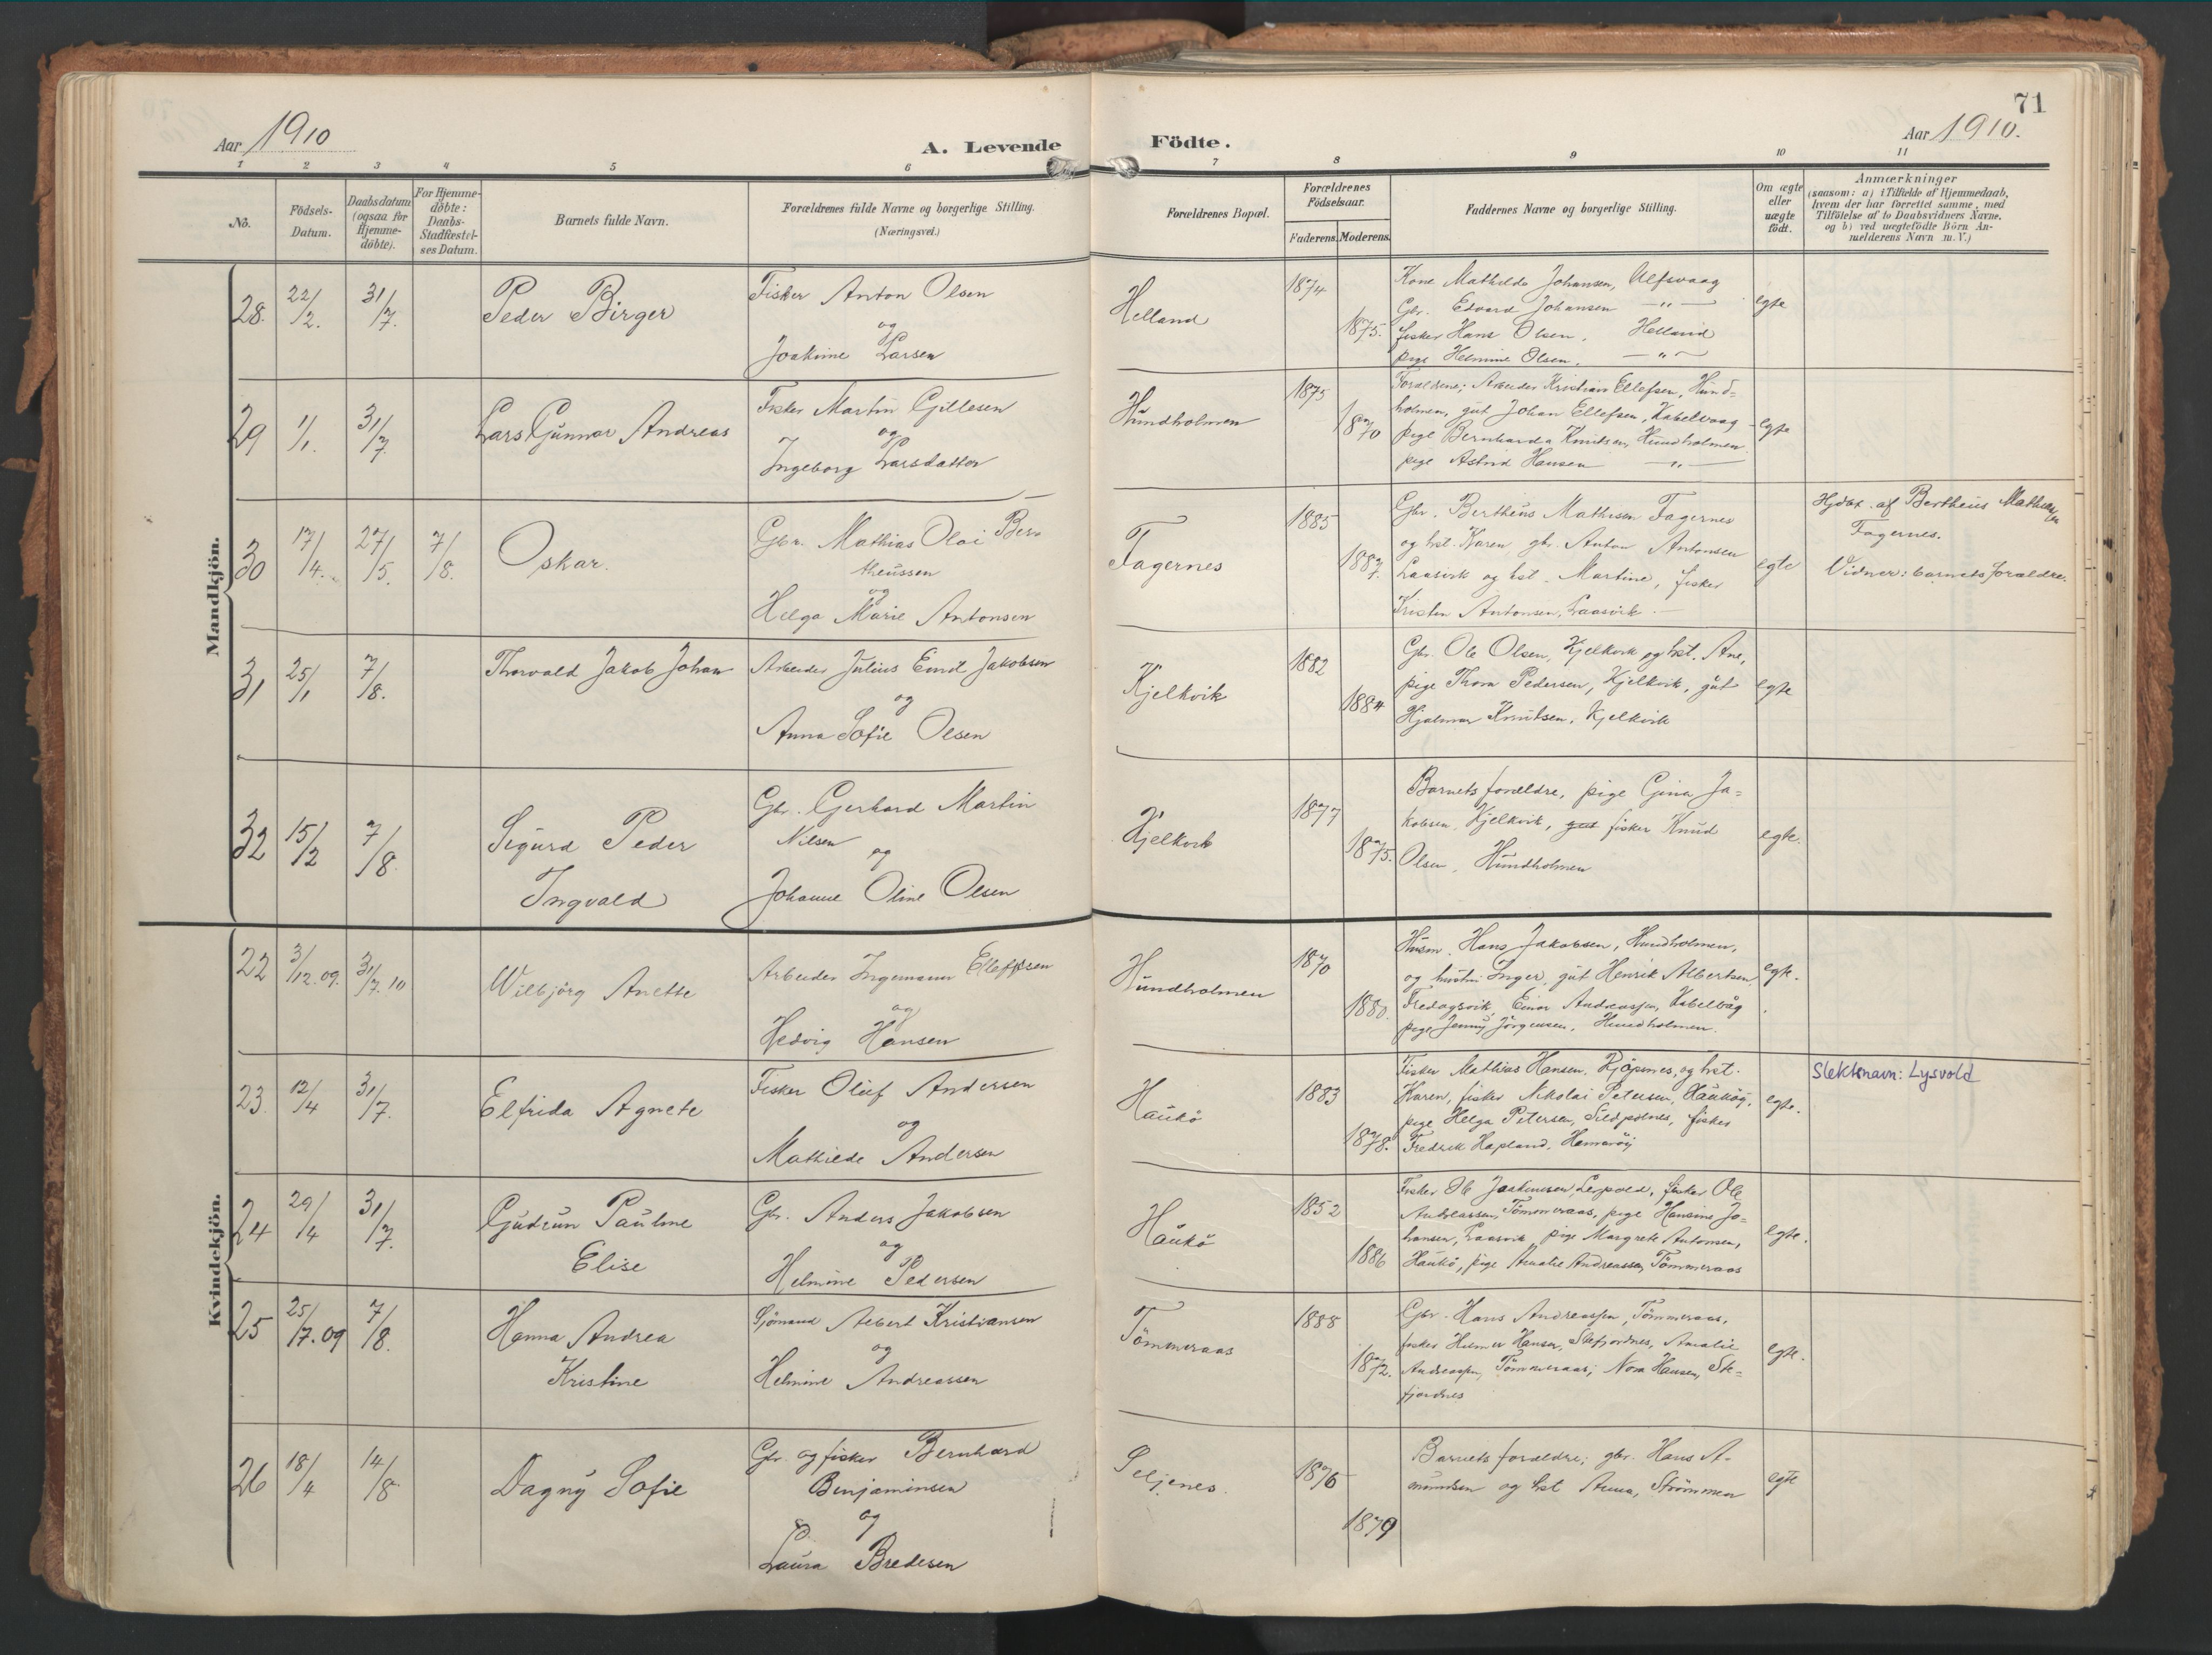 71
Aar 1910
A. Levende Födte.
Aar 1910.
1 2 3 4 5 6 7 8 9 10 11
No.
Födsels-
Datum.
Daabsdatum
(ogsaa for
Hjemme-
döbte).
For Hjemme-
döbte:
Daabs-
Stadfæstel-
ses Datum.
Barnets fulde Navn.
Forældrenes fulde Navne og borgerlige Stilling.
(Næringsvei.)
Forældrenes Bopæl.
Forældrenes
Födselsaar.
Faderens. Moderens.
Faddernes Navne og borgerlige Stilling.
Om ægte
eller
uægte
födt.
Anmærkninger
(saasom: a) i Tilfælde af Hjemmedaab,
hvem der har forrettet samme, med
Tilföielse af to Daabsvidners Navne.
og b) ved uægtefödte Börn An-
mælderens Navn m. V.)
Mandkjön.
28. 22/2. 31/7.
Peder Birger
Fisker Anton Olsen
og
Joakime Larsen
Helland
1874
1875.
Kone Mathilde Johansen, Ulfsvaag
Gbr. Edvard Johansen — " —
fisker Hans Olsen, Helland
pige Helmine Olsen, — " —
egte
29 1/1. 31/7.
Lars Gunnar Andreas
Fisker Martin Gillesen
og
Ingeborg Larsdatter
Hundholmen
1875
1870
Forældrene; Arbeider Kristian Ellefsen, Hund-
holmen, gut Johan Ellefsen, Kabelvaag
pige Bernharda Knutsen, Hundholmen
pige Astrid Hansen — " —
egte
30 17/4. 27/5. 7/8.
Oskar.
Gbr. Mathias Olai Ber-
theussen
og
Helga Marie Antonsen
Fagernes
1885
1887.
Gbr. Bertheus Mathisen Fagernes
og hst. Karen gbr. Anton Antonsen
Laasvik og hst. Martine, fisker
Kristen Antonsen, Laasvik. —
egte
Hjdøt. af Bertheus Mathisen
Fagernes.
Vidner: barnets forældre.
31 25/1 7/8.
Thorvald Jakob Johan
Arbeider Julius Emil Jakobsen
og
Anna Sofie Olsen
Kjelkvik
1882
1884
Gbr. Ole Olsen, Kjelkvik og hst. Ane,
pige Thora Pedersen, Kjelkvik, gut
Hjalmar Knutsen, Kjelkvik
egte
32 15/2 7/8.
Sigurd Peder
Ingvald
Gbr. Gerhard Martin
Nilsen
og
Johanne Oline Olsen
Kjelkvik
1877
1875.
Barnets forældre, pige Gina Ja-
kobsen, Kjelkvik, gut fisker Knud
Olsen, Hundholmen
egte.
Kvindekjön.
22 3/12.09. 31/7.10
Wilbjörg Anette
Arbeider Ingemann Elleffsen
og
Hedvig Hansen
Hundholmen
1870
1880.
Husm. Hans Jakobsen, Hundholmen,
og hustru Inger, gut Henrik Albertsen
Fredagsvik, Einar Andreassen, Kabelvåg
pige Jenny Jörgensen, Hundholmen.
egte.
23. 12/4 31/7.
Elfrida Agnete
Fisker Oluf Andersen
og
Mathilde Andersen
Haukö
1883
1878.
Fisker Mathias Hansen, Kjöpnes, og hst.
Karen, fisker Nikolai Petersen, Haukøy,
pige Helga Petersen, Sildpolnes, fisker
Fredrik Hapland, Hamarøy
egte.
Slektsnavn: Lysvold
24 29/4 31/7.
Gudrun Pauline
Elise
Gbr. Anders Jakobsen
og
Helmine Pedersen
Haukö
1852
1886
Fisker Ole Joakimsen, fisker Ole
Andreassen, Tömmeraas, pige Hansine Jo-
hansen, Laasvik pige Margrete Antonsen,
Haukö, pige Amalie Andreassen, Tömmeraas
egte.
25 25/7.09 7/8.
Hanna Andrea
Kristine
Sjömand Albert Kristiansen
og
Helmine Andreassen
Tömmeraas
1888
1872.
Gbr. Hans Andreassen, Tömmeraas,
fisker Hilmer Hansen, Stefjordnes, Amalie
Andreassen, Tömmeraas, Nora Hansen, Ste-
fjordnes
egte.
26 18/4 14/8
Dagny Sofie
Gbr. og fisker Bernhard
Benjaminsen
og
Laura Bredesen
Seljenes.
1876
1879
Barnets forældre; gbr. Hans A-
mundsen og hst Anna, Strömmen
egte